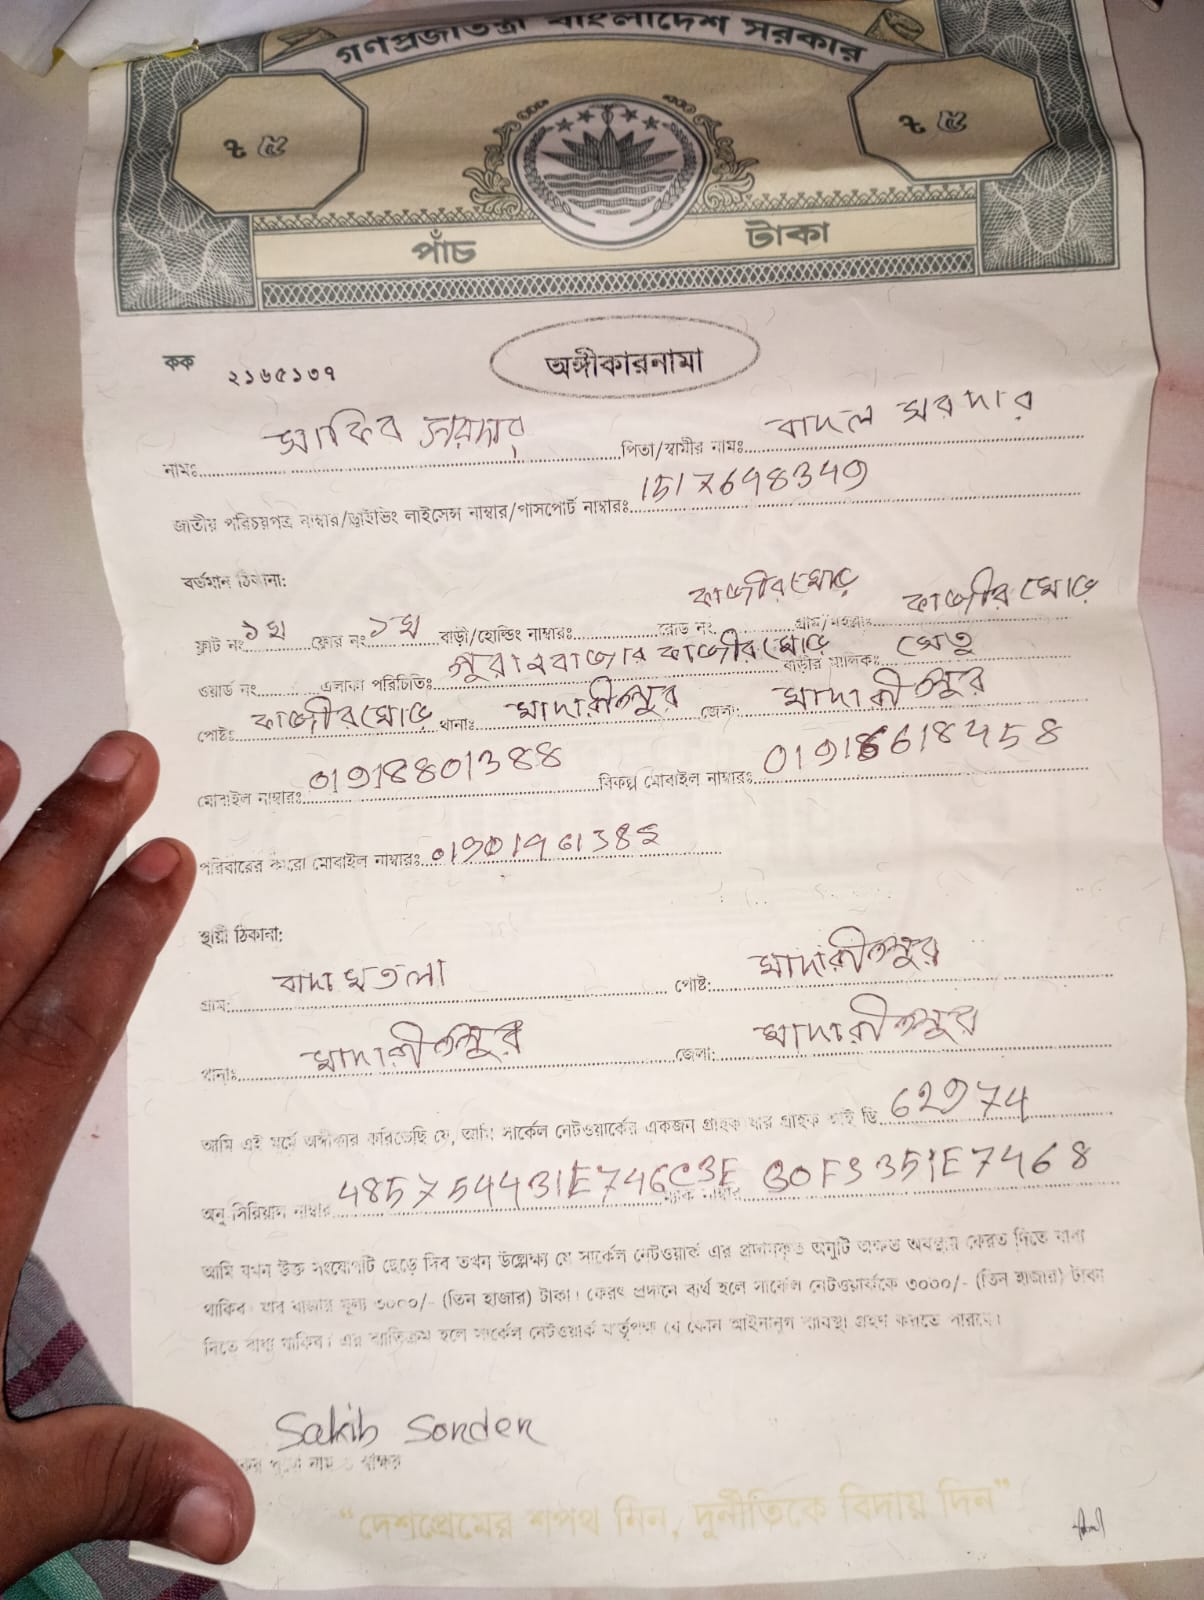 গণপ্রজাতন্ত্রী বাংলাদেশ সরকার
৳ ৫ ৳ ৫
পাঁচ টাকা
অঙ্গীকারনামা
কক ২১৬৫১৩৭
নামঃ সাকিব সরদার পিতা/স্বামীর নামঃ বাদল সরদার
জাতীয় পরিচয়পত্র নাম্বার/ড্রাইভিং লাইসেন্স নাম্বার/পাসপোর্ট নাম্বারঃ 1517698349
বর্তমান ঠিকানা:
ফ্লাট নং ১ম ফ্লোর নং ১ম বাড়ী/হোল্ডিং নাম্বারঃ রোড নং কাজীর মোড় গ্রাম/মহল্লাঃ কাজীর মোড়
ওয়ার্ড নং এলাকা পরিচিতিঃ পুরানবাজার কাজীর মোড় বাড়ীর মালিকঃ সেতু
পোষ্টঃ কাজীর মোড় থানাঃ মাদারীপুর জেলা: মাদারীপুর
মোবাইল নাম্বারঃ 01918801388 বিকল্প মোবাইল নাম্বারঃ
পরিবারের কারো মোবাইল নাম্বারঃ
স্থায়ী ঠিকানা:
গ্রাম: বাদামতলা পোষ্ট: মাদারীপুর
থানাঃ মাদারীপুর জেলা: মাদারীপুর
আমি এই মর্মে অঙ্গীকার করিতেছি যে, আমি সার্কেল নেটওয়ার্কের একজন গ্রাহক যার গ্রাহক আই ডি 62974
অনু সিরিয়াল নাম্বার 485754431E746C3E ম্যাক নাম্বার 30F3351E7468
আমি যখন উক্ত সংযোগটি ছেড়ে দিব তখন উল্লেখ্য যে সার্কেল নেটওয়ার্ক এর প্রদানকৃত অনুটি অক্ষত অবস্থায় ফেরত দিতে বাধ্য
থাকিব। যার বাজার মূল্য ৩০০০/- (তিন হাজার) টাকা। ফেরৎ প্রদানে ব্যর্থ হলে সার্কেল নেটওয়ার্ককে ৩০০০/- (তিন হাজার) টাকা
দিতে বাধ্য থাকিব। এর ব্যতিক্রম হলে সার্কেল নেটওয়ার্ক কর্তৃপক্ষ যে কোন আইনানুগ ব্যবস্থা গ্রহণ করতে পারবে।
Sakib Sorder
পুরো নাম ও স্বাক্ষর
“দেশপ্রেমের শপথ নিন, দুর্নীতিকে বিদায় দিন”